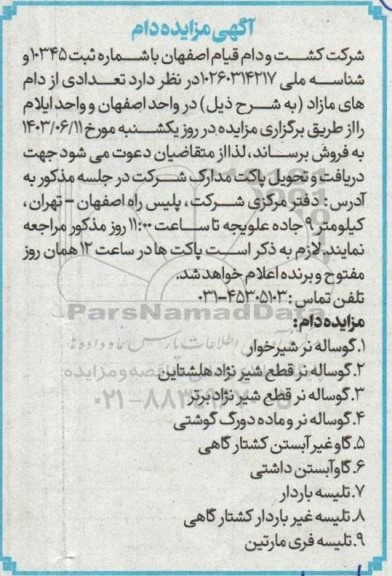 آگهی مزایده دام
شرکت کشت و دام قیام اصفهان با شماره ثبت ۱۰۳۴۵ و
شناسه ملی ۱۰۲۶۰۳۱۴۲۱۷ در نظر دارد تعدادی از دام
های مازاد (به شرح ذیل) در واحد اصفهان و واحد ایلام
را از طریق برگزاری مزایده در روز یکشنبه مورخ ۱۴۰۳/۰۶/۱۱
به فروش برساند، لذا از متقاضیان دعوت می شود جهت
دریافت و تحویل پاکت مدارک شرکت در جلسه مذکور به
آدرس: دفتر مرکزی شرکت، پلیس راه اصفهان - تهران،
کیلومتر ۹ جاده علویجه تا ساعت ۱۱:۰۰ روز مذکور مراجعه
نمایند. لازم به ذکر است پاکت ها در ساعت ۱۲ همان روز
مفتوح و برنده اعلام خواهد شد.
تلفن تماس: ۴۵۳۰۵۱۰۳-۰۳۱
ParsNamadData
مزایده دام:
۱. گوساله نر شیرخوار
۲. گوساله نر قطع شیر نژاد هلشتاین
۳. گوساله نر قطع شیر نژاد برتر
۴. گوساله نر و ماده دورگ گوشتی
۵. گاو غیر آبستن کشتارگاهی
۶. گاو آبستن داشتی
۷. تلیسه باردار
۸. تلیسه غیر باردار کشتارگاهی
۹. تلیسه فری مارتین